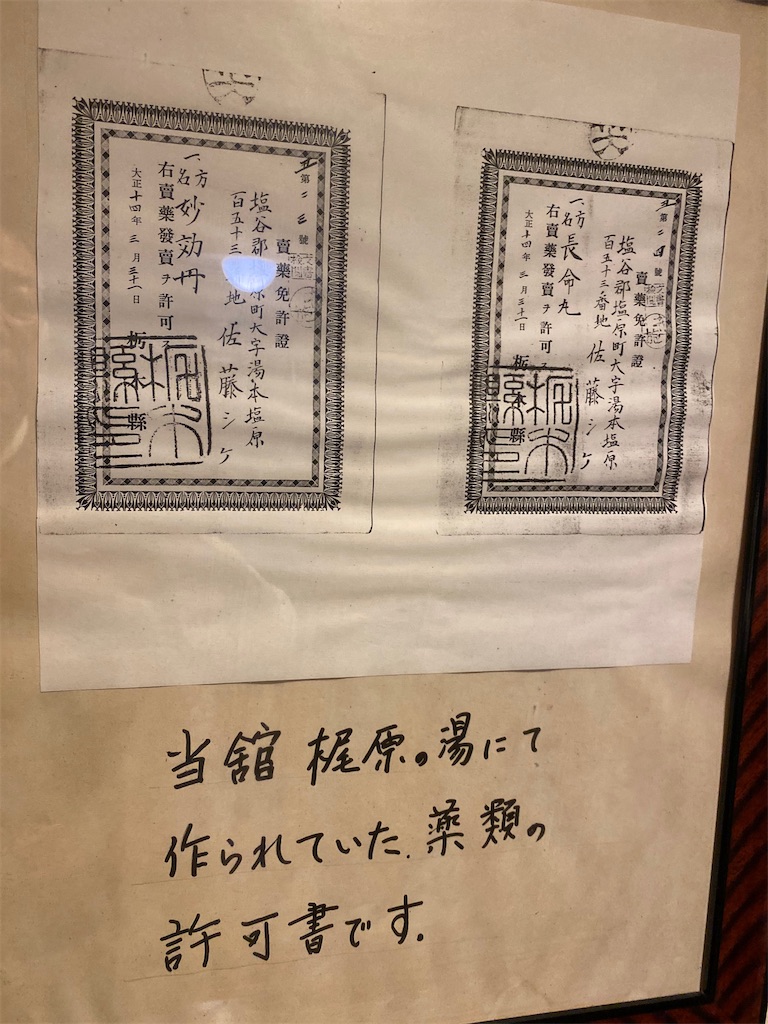 第二三號
賣藥免許證
塩谷郡
原町大字湯本塩原
百五十三
地
佐藤シケ
一方名妙効丹
右賣藥發賣ヲ許可ス
大正十四年三月三十一日
栃木縣
第二四號
賣藥免許證
塩谷郡塩原町大字湯本塩原
百五十三番地
佐藤シケ
一方名長命丸
右賣藥發賣ヲ許可ス
大正十四年三月三十一日
栃木縣
当舘 梶原の湯にて
作られていた、薬類の
許可書です.